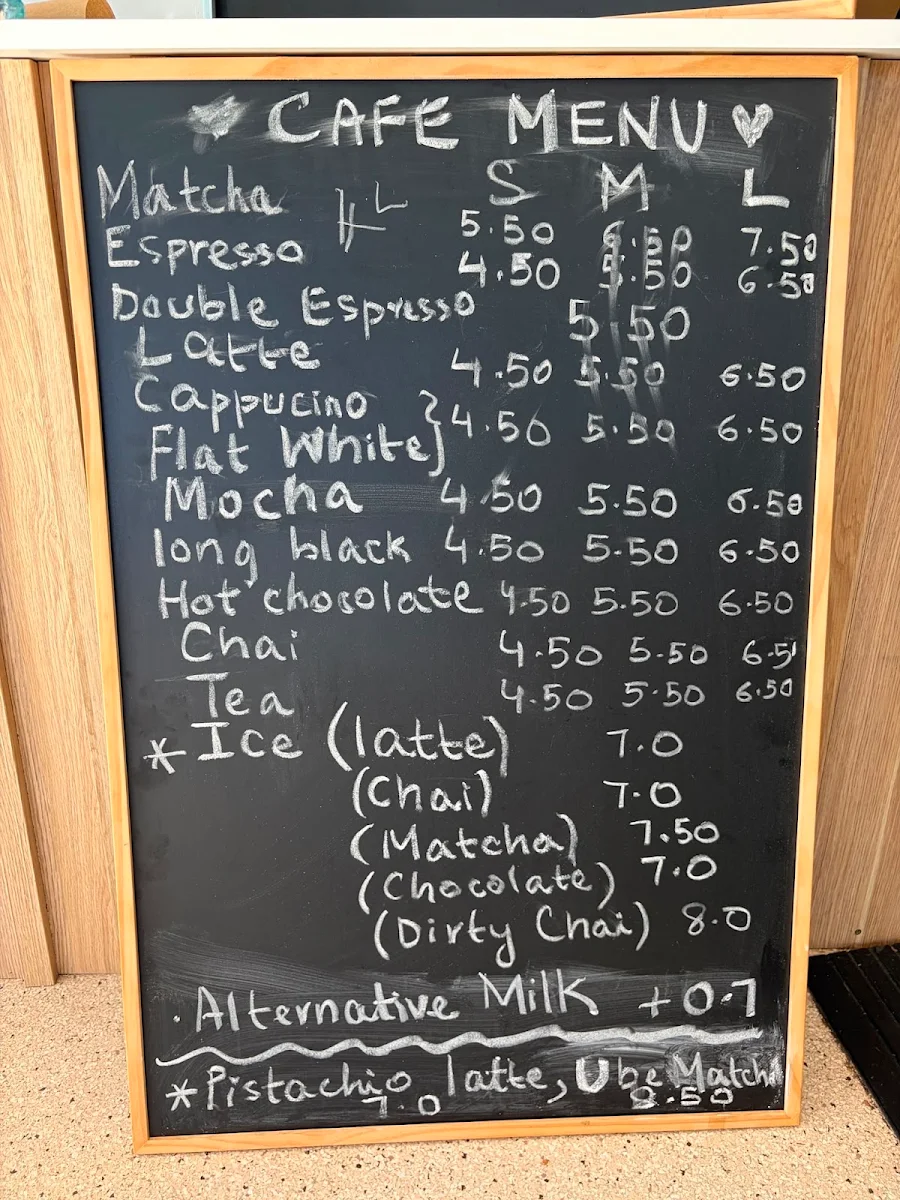 CAFE MENU ♥
Matcha S M L
5.50 6.50 7.50
Espresso 4.50 5.50 6.50
Double Espresso 5.50
Latte 4.50 5.50 6.50
Cappucino
Flat White } 4.50 5.50 6.50
Mocha 4.50 5.50 6.50
long black 4.50 5.50 6.50
Hot chocolate 4.50 5.50 6.50
Chai 4.50 5.50 6.5
Tea 4.50 5.50 6.50
* Ice (latte) 7.0
(Chai) 7.0
(Matcha) 7.50
(Chocolate) 7.0
(Dirty Chai) 8.0
. Alternative Milk +0.7
* Pistachio latte, Ube Matcha
7.0 8.50